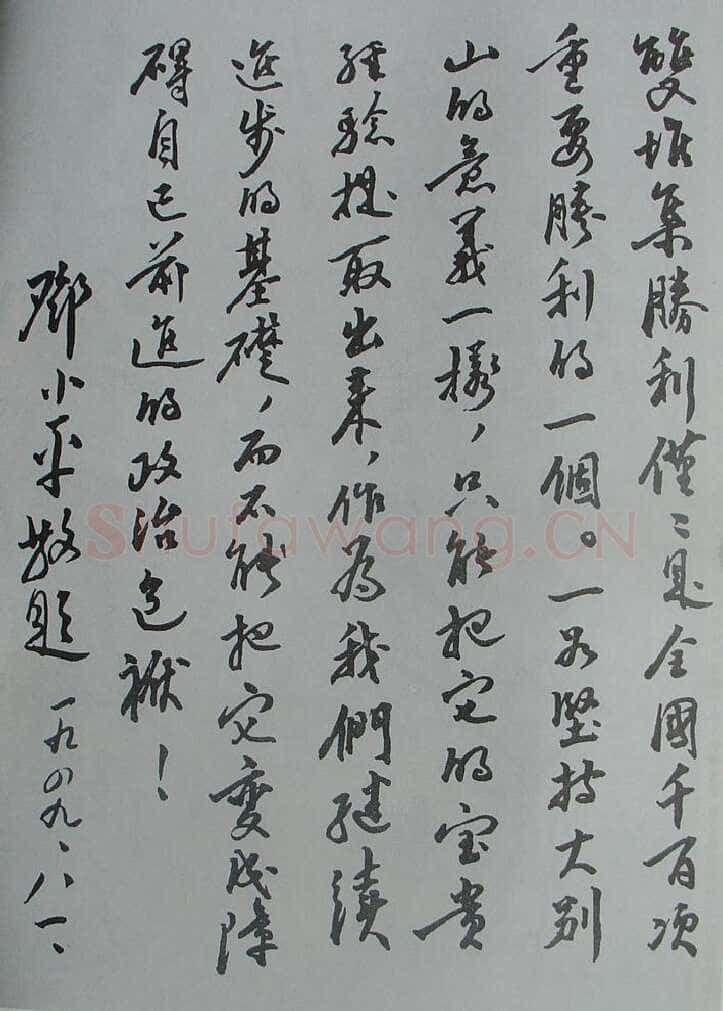 雙堆集勝利僅〻是全國千百项
重要勝利的一個。一如堅持大别
山的意義一樣，只能把它的宝貴
經驗提取出來，作為我們继續
進步的基礎，而不能把它变成障
碍自己前進的政治包袱！
鄧小平敬題 一九四九、八、一、
Shufawang.CN